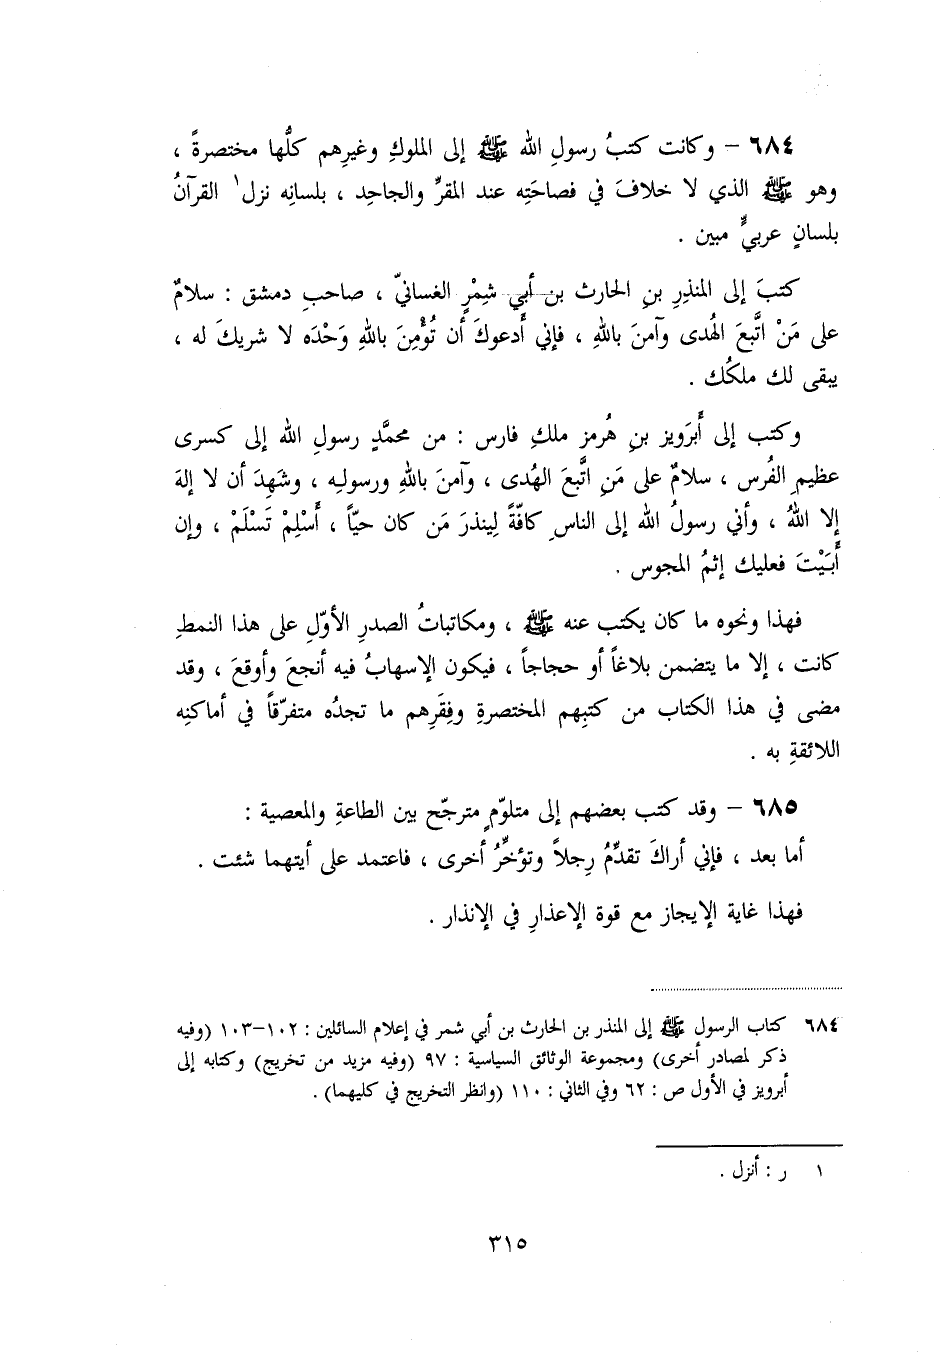 ٦٨٤ – وكانت كتبُ رسولِ الله ﷺ إلى الملوكِ وغيرِهم كلُّها مختصرةً ،
وهو ﷺ الذي لا خلافَ في فصاحَتِه عند المقرِّ والجاحِد ، بلسانِه نزل١ القرآنُ
بلسانٍ عربيٍّ مبين .
كتبَ إلى المنذِرِ بنِ الحارث بن أبي شِمْرٍ الغسانيّ ، صاحبِ دمشق : سلامٌ
على مَنْ اتَّبعَ الهُدى وآمنَ باللهِ ، فإني أَدعوكَ أن تُؤْمِنَ باللهِ وَحْدَه لا شريكَ له ،
يبقى لك ملكُك .
وكتب إلى أَبرَويز بنِ هُرمز ملكِ فارس : من محمَّدٍ رسولِ الله إلى كسرى
عظيمِ الفُرس ، سلامٌ على مَنِ اتَّبعَ الهُدى ، وآمنَ باللهِ ورسولِه ، وشَهِدَ أن لا إلهَ
إلا اللهُ ، وأني رسولُ الله إلى الناسِ كافّةً لِينذرَ مَن كان حيّاً ، أَسْلِمْ تَسْلَمْ ، وإن
أَبَيْتَ فعليك إثمُ المجوس .
فهذا ونحوه ما كان يكتب عنه ﷺ ، ومكاتباتُ الصدرِ الأوّلِ على هذا النمطِ
كانت ، إلا ما يتضمن بلاغاً أو حجاجاً ، فيكون الإسهابُ فيه أنجعَ وأوقعَ ، وقد
مضى في هذا الكتاب من كتبِهم المختصرةِ وفِقَرِهم ما تجدُه متفرّقاً في أماكنِه
اللائقةِ به .
٦٨٥ – وقد كتب بعضهم إلى متلوّمٍ مترجّح بين الطاعةِ والمعصية :
أما بعد ، فإني أراكَ تقدِّمُ رِجلاً وتؤخِّرُ أخرى ، فاعتمد على أيتهما شئت .
فهذا غاية الإيجاز مع قوة الإعذارِ في الإنذار .
٦٨٤ كتاب الرسول ﷺ إلى المنذر بن الحارث بن أبي شمر في إعلام السائلين : ١٠٢–١٠٣ (وفيه
ذكر لمصادر أخرى) ومجموعة الوثائق السياسية : ٩٧ (وفيه مزيد من تخريج) وكتابه إلى
أبرويز في الأول ص : ٦٢ وفي الثاني : ١١٠ (وانظر التخريج في كليهما) .
١ ر : أنزل .
٣١٥